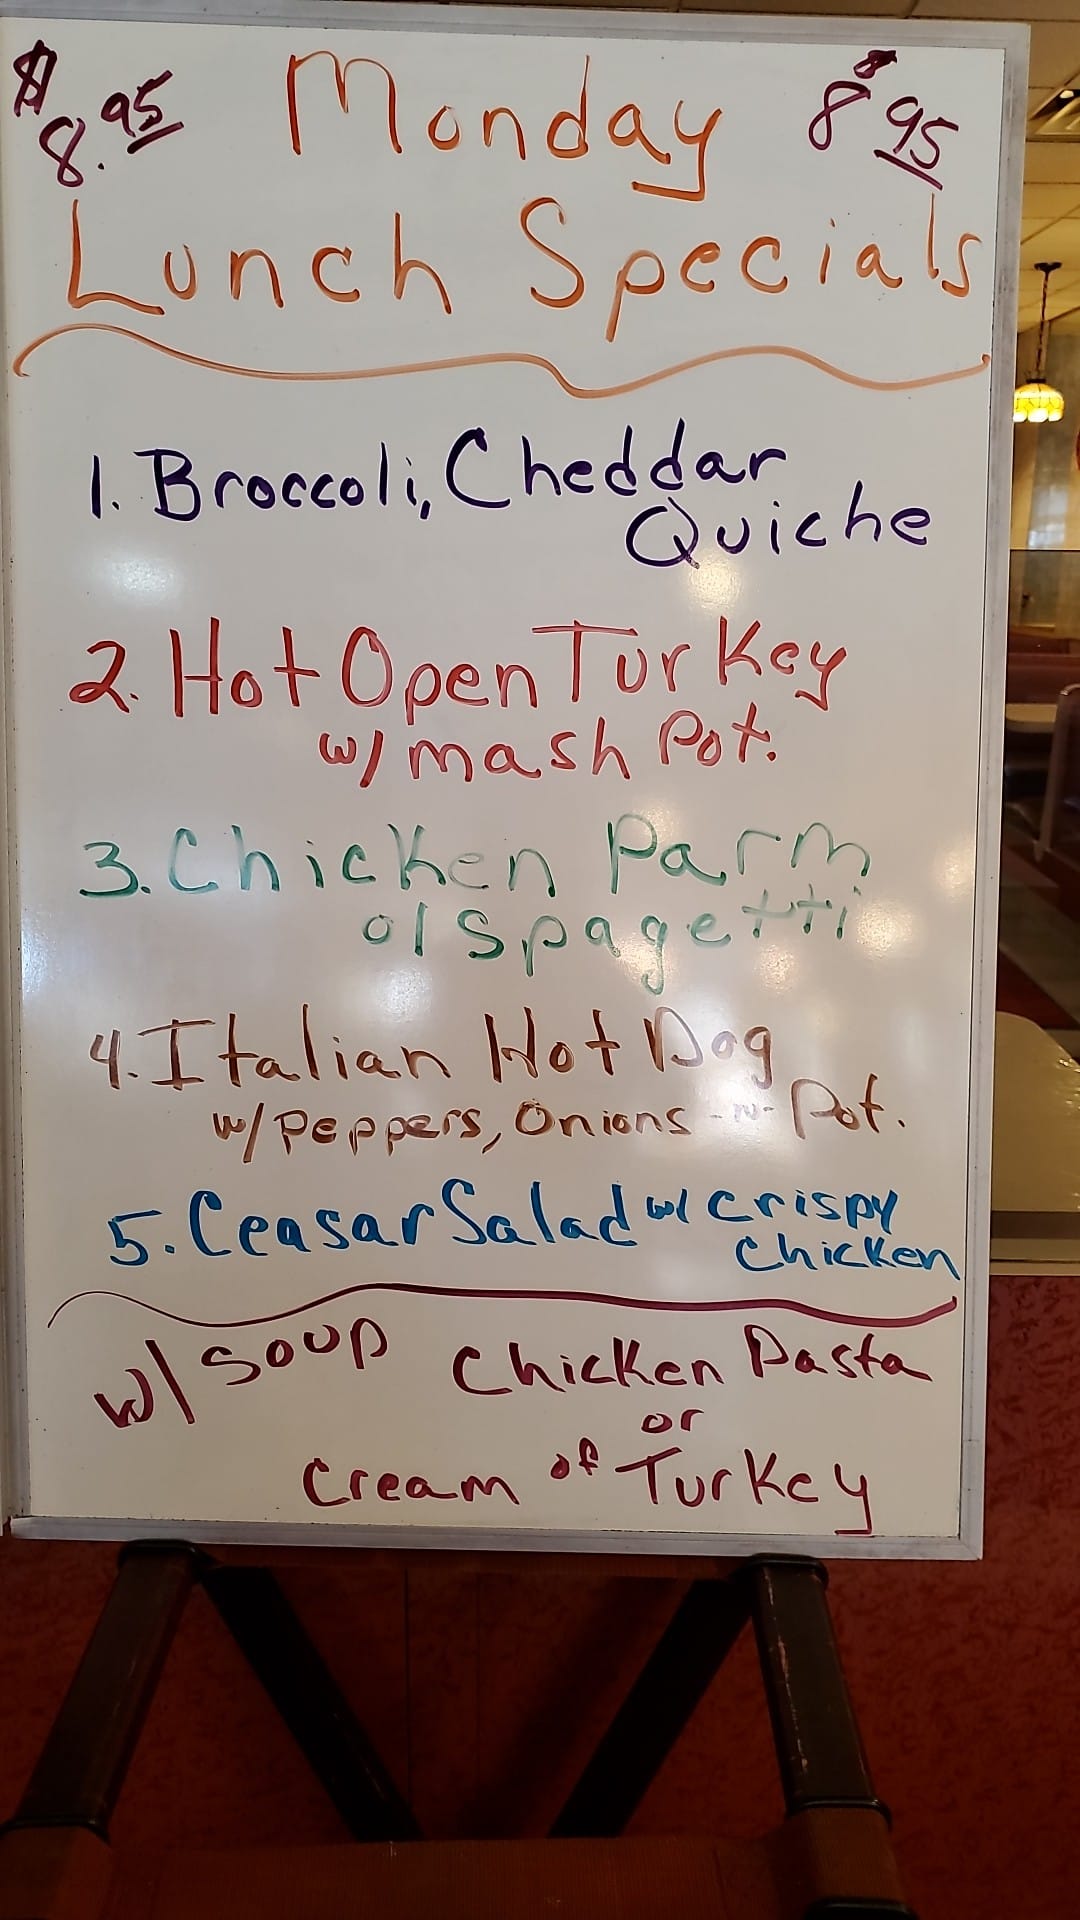 $8.95 Monday $8 95
Lunch Specials
1. Broccoli, Cheddar
Quiche
2. Hot Open Turkey
w/ mash Pot.
3. Chicken Parm
o/ Spagetti
4. Italian Hot Dog
w/ Peppers, Onions -n- Pot.
5. Ceasar Salad w/ Crispy
Chicken
w/ Soup Chicken Pasta
or
Cream of Turkey